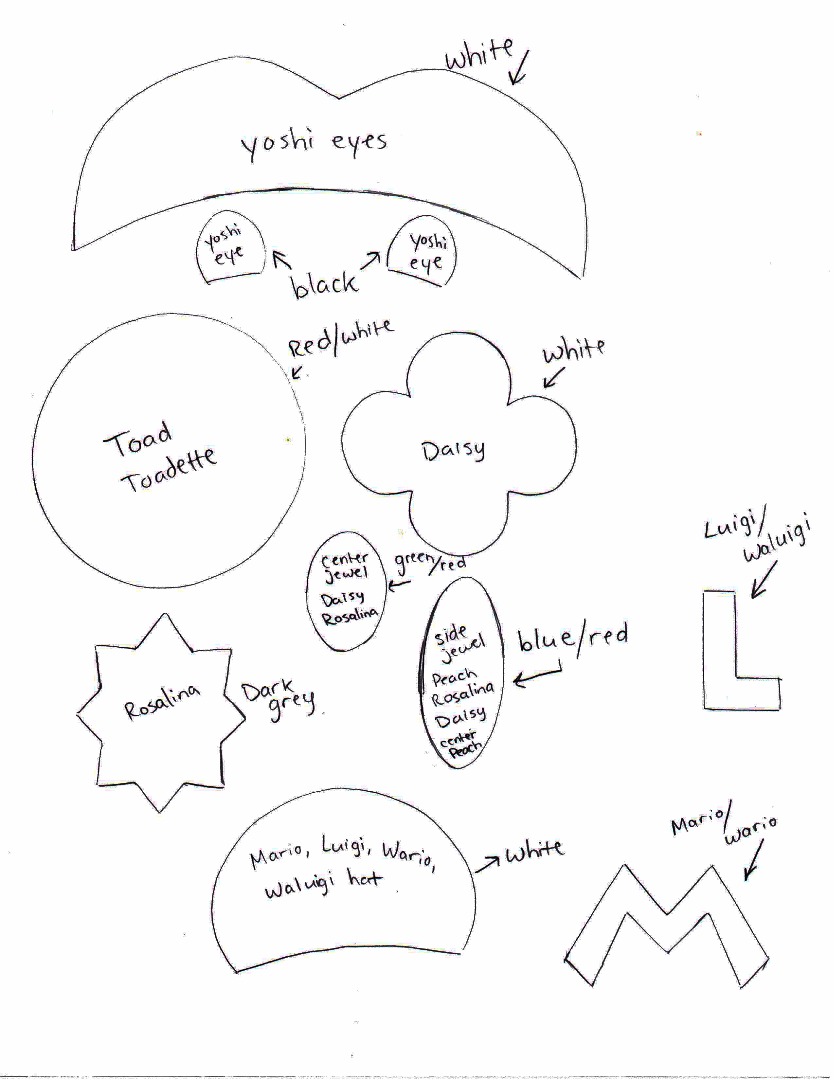 white
yoshi eyes
yoshi
eye
yoshi
eye
black
Red/white
Toad
Toadette
white
Daisy
center
jewel
Daisy
Rosalina
green/red
side
jewel
Peach
Rosalina
Daisy
center
Peach
blue/red
Luigi/
Waluigi
L
Rosalina
Dark
grey
Mario, Luigi, Wario,
Waluigi hat
white
Mario/
Wario
M